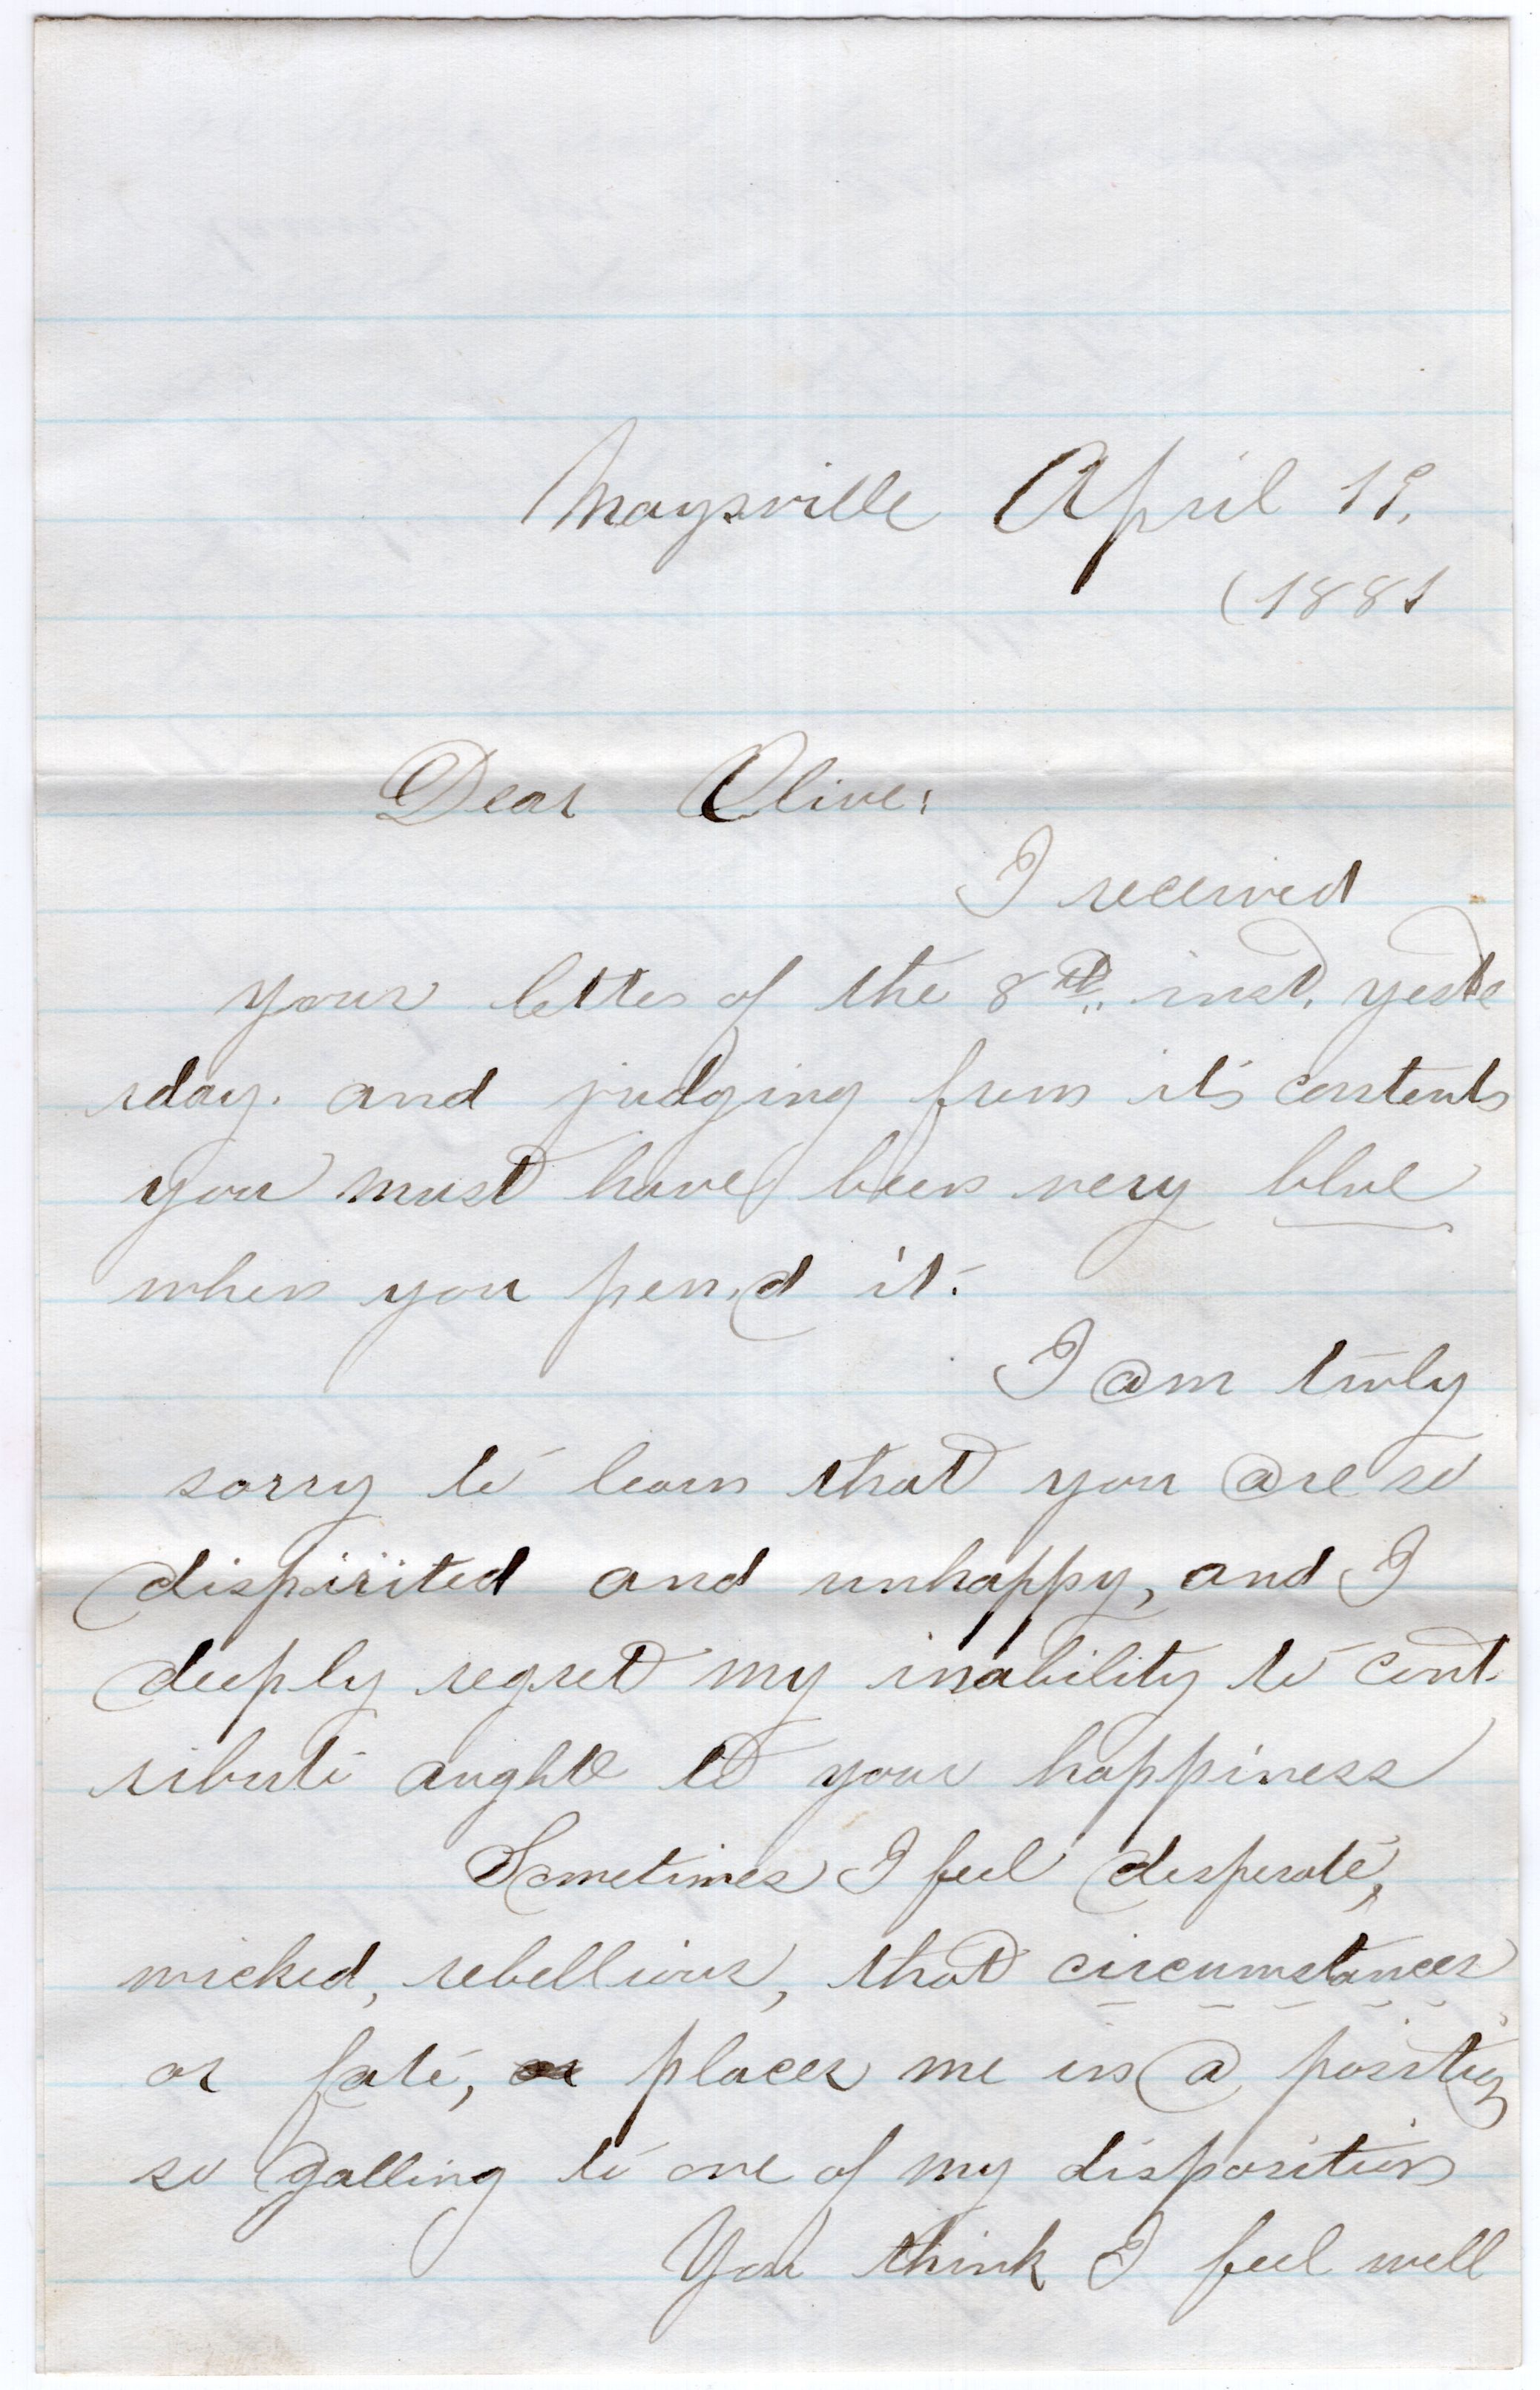 Maysville April 19,
(1881
Dear Olive:
I received
your letter of the 8th. inst. yeste
rday. and judging from it's contents
you must have been very blue
when you pen,d it.
I am truly
sorry to learn that you are so
dispirited and unhappy, and I
deeply regret my inability to cont-
ribute aught to your happiness
Sometimes I feel desperate,
wicked, rebellious, that circumstances
or fate, or places me in a position
so galling to one of my disposition
You think I feel well